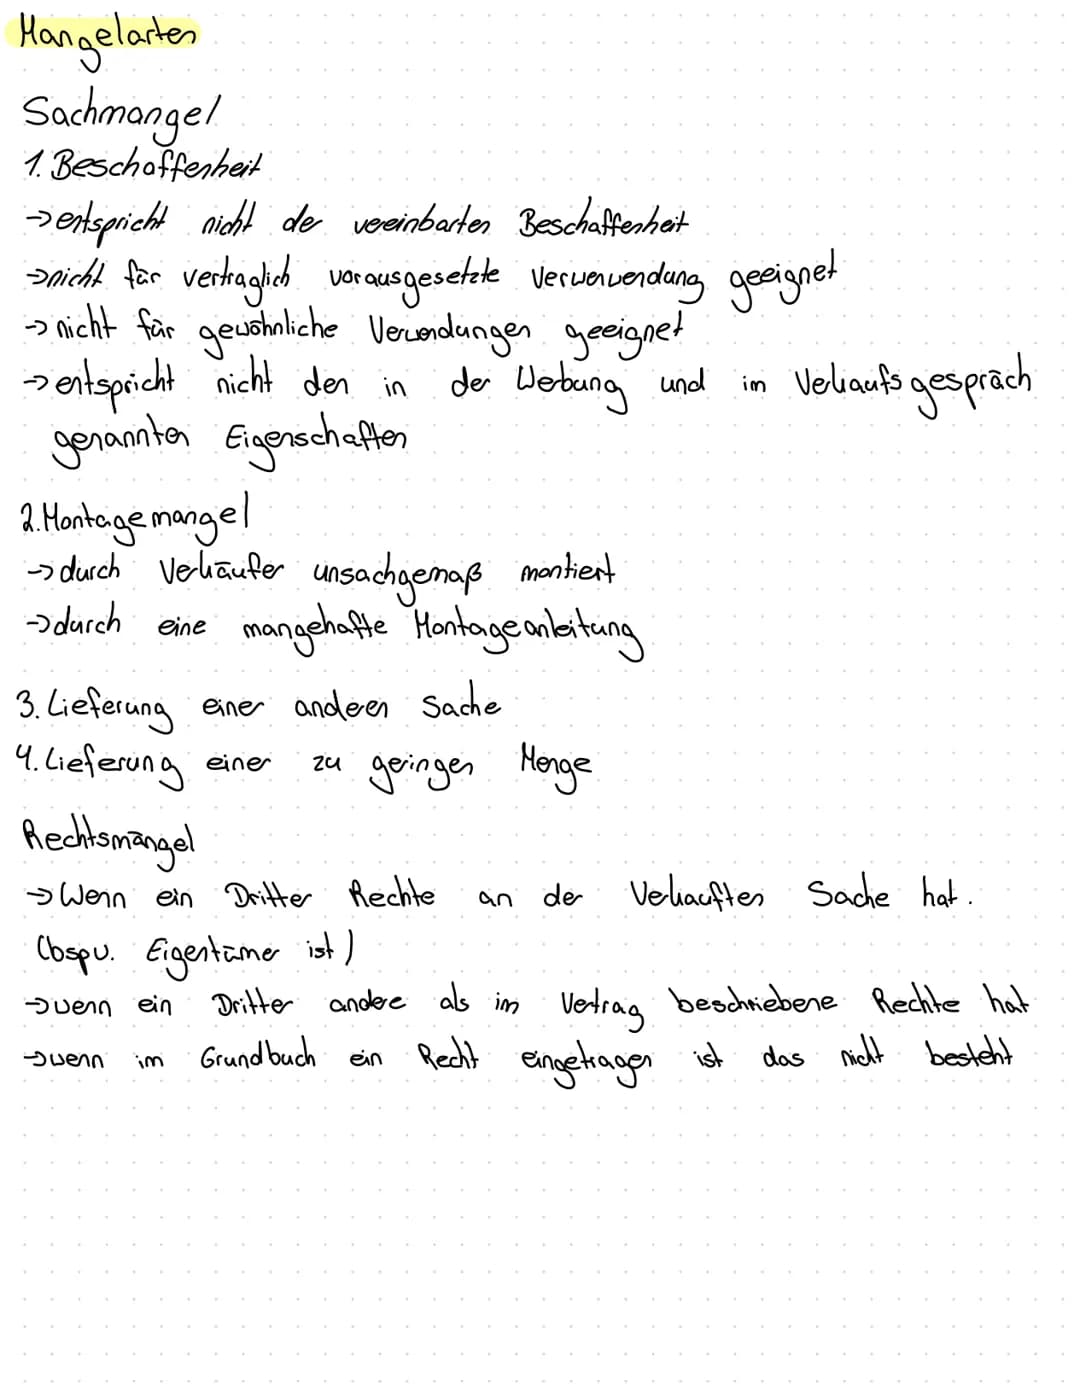 Mangelarten
Sachmangel
1. Beschaffenheit
→ entspricht nicht der vereinbarten Beschaffenheit
→ nicht für vertraglich vorausgesetzte Verwerwendung geeignet
→ nicht für gewöhnliche Verwendungen geeignet
→ entspricht nicht den in der Werbung und im Verkaufsgespräch
genannten Eigenschaften
2. Montagemangel
→ durch Verkäufer unsachgemaß montiert
→ durch eine mangehafte Montageanleitung
3. Lieferung einer anderen Sache
4. Lieferung einer zu geringen Menge
Rechtsmängel
→ Wenn ein Dritter Rechte an der Verkauften Sache hat.
(bspw. Eigentümer ist)
→ wenn ein Dritter andere als im Vertrag beschriebene Rechte hat
→ wenn im Grundbuch ein Recht eingetragen ist das nicht besteht